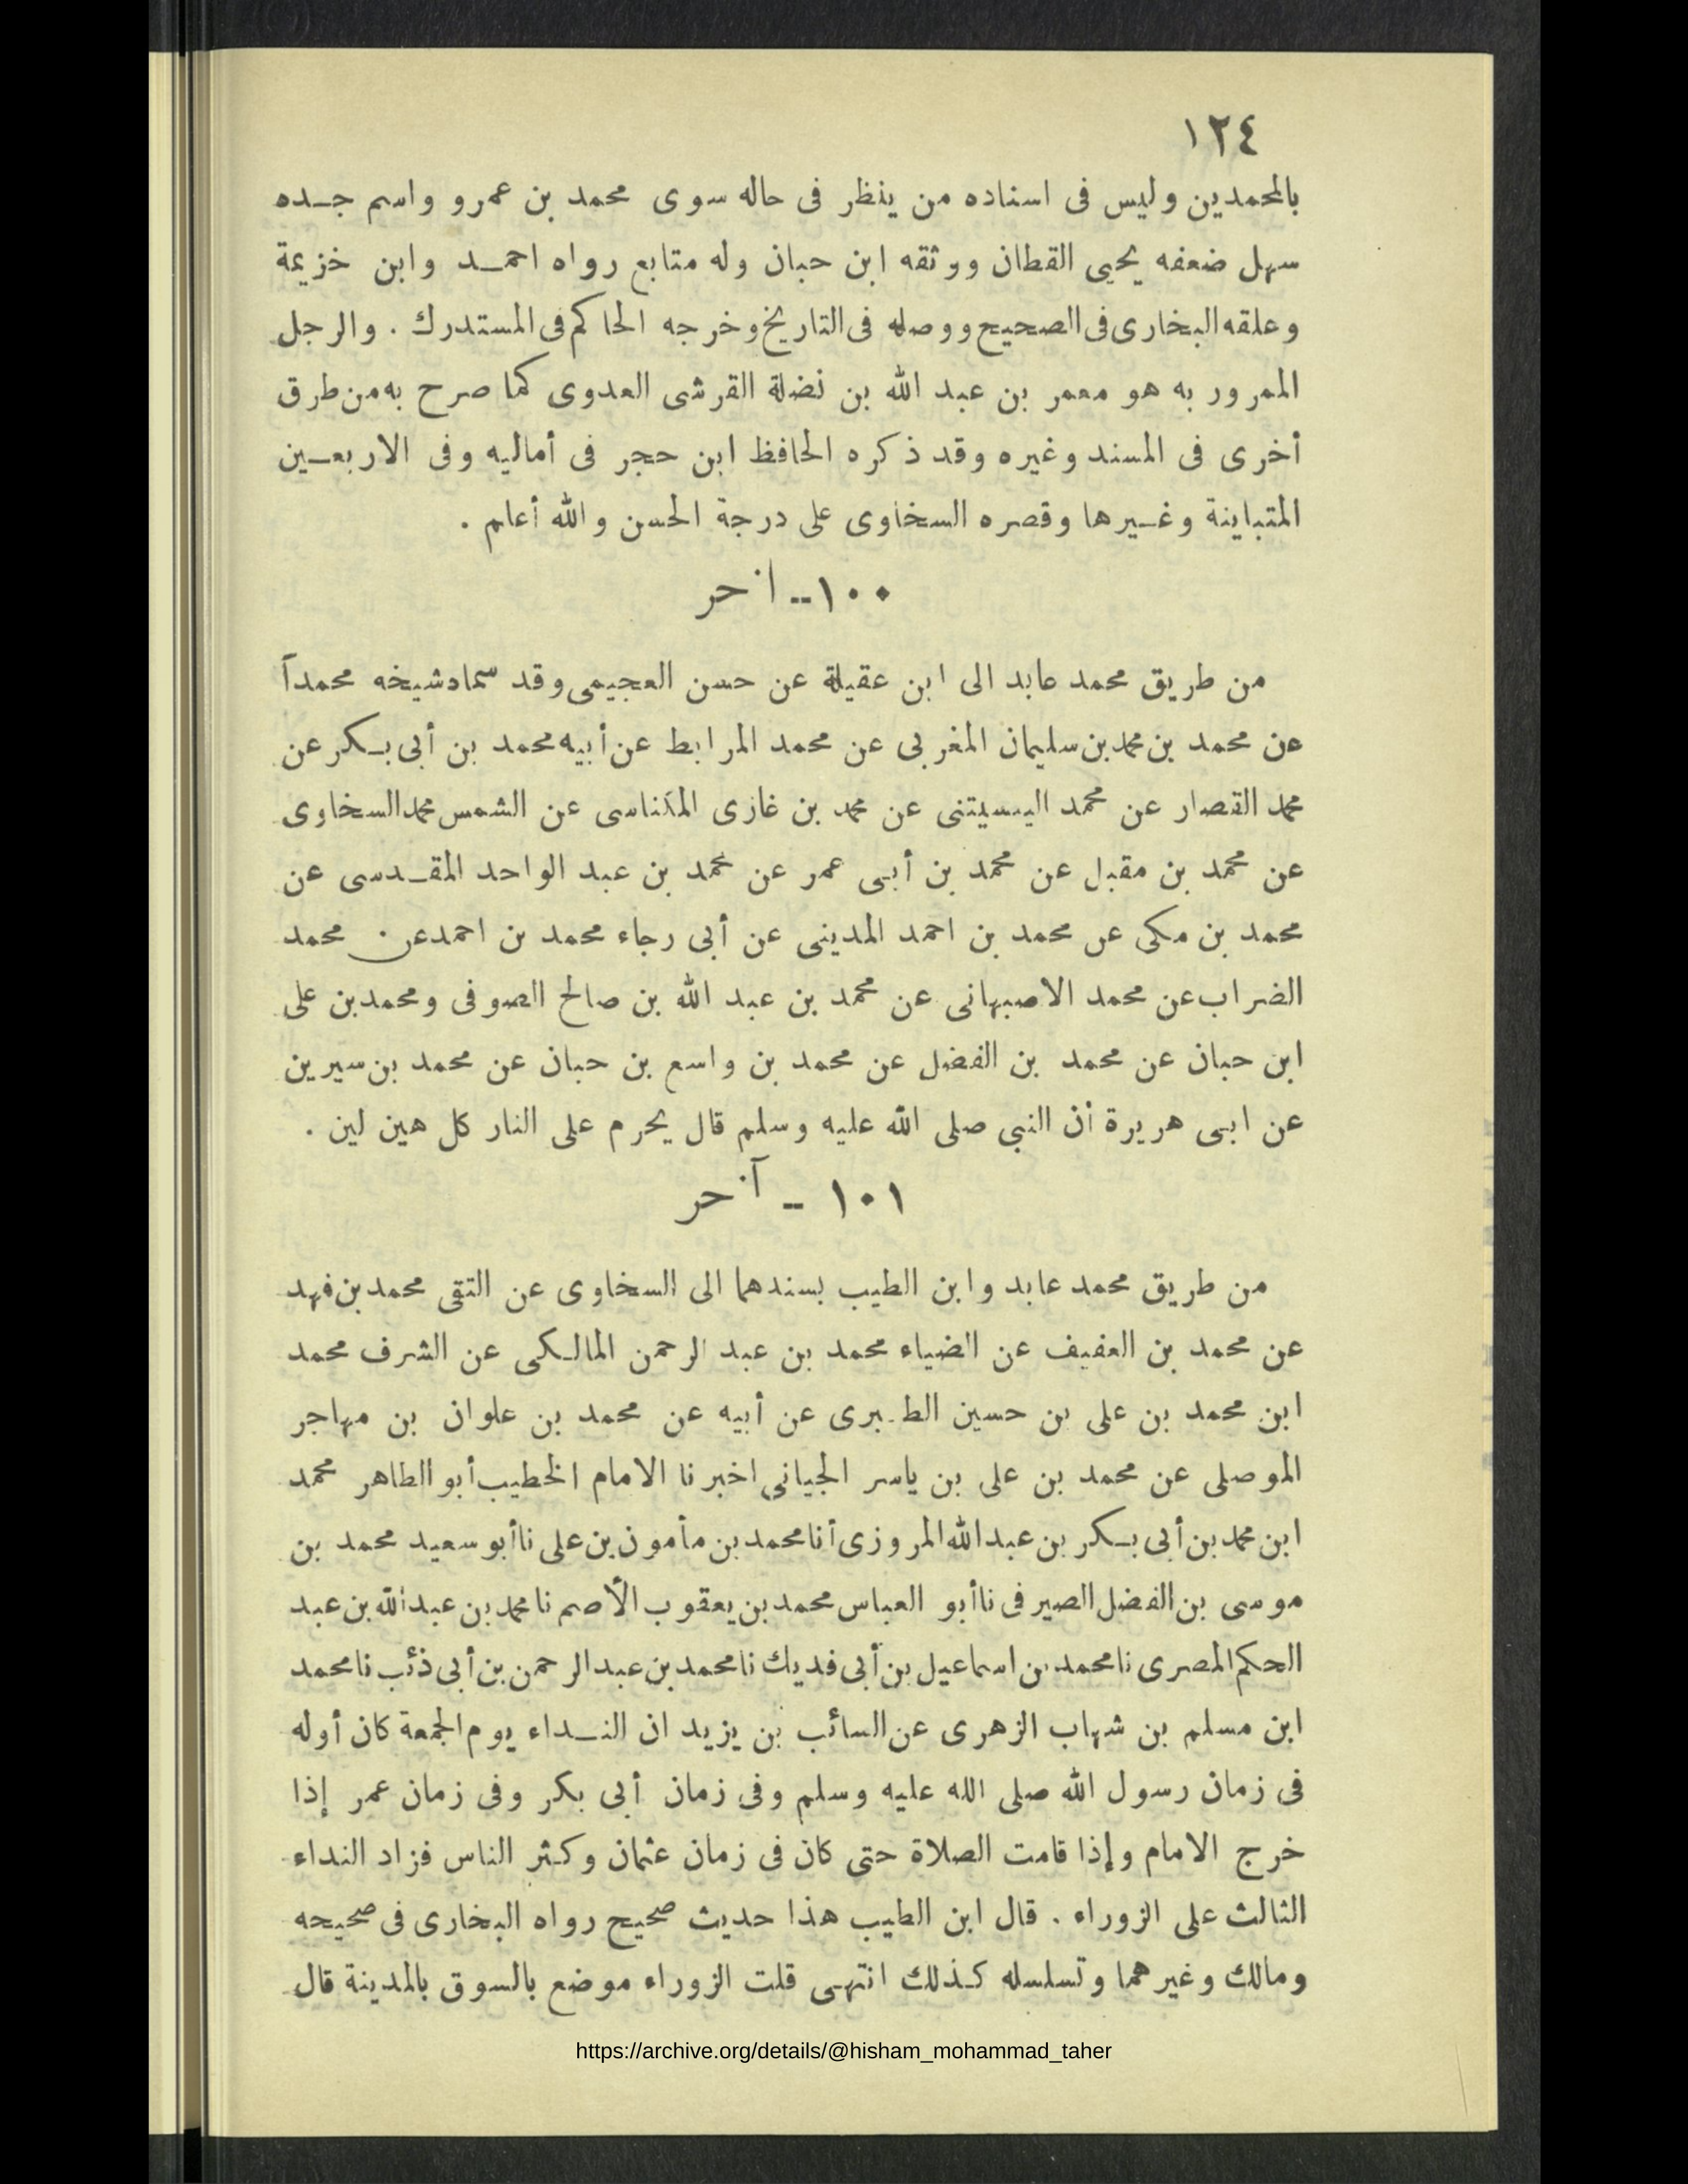 ١٢٤
بالمحمدين وليس فى اسناده من ينظر فى حاله سوى محمد بن عمرو واسم جـده
سهل ضعفه يحيى القطان ووثقه ابن حبان وله متابع رواه احمـد وابن خزيمة
وعلقه البخارى فى الصحيح ووصله فى التاريخ وخرجه الحاكم فى المستدرك . والرجل
الممرور به هو معمر بن عبد الله بن نضلة القرشى العدوى كما صرح به من طرق
أخرى فى المسند وغيره وقد ذكره الحافظ ابن حجر فى أماليه وفى الاربعـين
المتباينة وغـيرها وقصره السخاوى على درجة الحسن والله أعلم .
١٠٠ ـ اخر
من طريق محمد عابد الى ابن عقيلة عن حسن العجيمى وقد سماه شيخه محمدآ
عن محمد بن محمد بن سليمان المغربى عن محمد المرابط عن أبيه محمد بن أبى بـكر عن
محمد القصار عن محمد اليسيتنى عن محمد بن غازى المكناسى عن الشمس محمد السخاوى
عن محمد بن مقبل عن محمد بن أبى عمر عن محمد بن عبد الواحد المقـدسى عن
محمد بن مكى عن محمد بن احمد المدينى عن أبى رجاء محمد بن احمد عن محمد
الضراب عن محمد الاصبهانى عن محمد بن عبد الله بن صالح الصوفى ومحمد بن على
ابن حبان عن محمد بن الفضل عن محمد بن واسع بن حبان عن محمد بن سيرين
عن ابى هريرة أن النبي صلى الله عليه وسلم قال يحرم على النار كل هين لين .
١٠١ ـ آخر
من طريق محمد عابد وابن الطيب بسندهما الى السخاوى عن التقى محمد بن فهد
عن محمد بن العفيف عن الضياء محمد بن عبد الرحمن المالـكى عن الشرف محمد
ابن محمد بن على بن حسين الطـبرى عن أبيه عن محمد بن علوان بن مهاجر
الموصلى عن محمد بن على بن ياسر الجيانى اخبرنا الامام الخطيب أبو الطاهر محمد
ابن محمد بن أبى بـكر بن عبد الله المروزى أنا محمد بن مأمون بن على نا أبو سعيد محمد بن
موسى بن الفضل الصيرفى نا أبو العباس محمد بن يعقوب الأصم نا محمد بن عبد الله بن عبد
الحكم المصرى نا محمد بن اسماعيل بن أبى فديك نا محمد بن عبد الرحمن بن أبى ذئب نا محمد
ابن مسلم بن شهاب الزهرى عن السائب بن يزيد ان النـداء يوم الجمعة كان أوله
فى زمان رسول الله صلى الله عليه وسلم وفى زمان أبى بكر وفى زمان عمر إذا
خرج الامام وإذا قامت الصلاة حتى كان فى زمان عثمان وكثر الناس فزاد النداء
الثالث على الزوراء . قال ابن الطيب هذا حديث صحيح رواه البخارى فى صحيحه
ومالك وغيرهما وتسلسله كـذلك انتهى قلت الزوراء موضع بالسوق بالمدينة قال
https://archive.org/details/@hisham_mohammad_taher